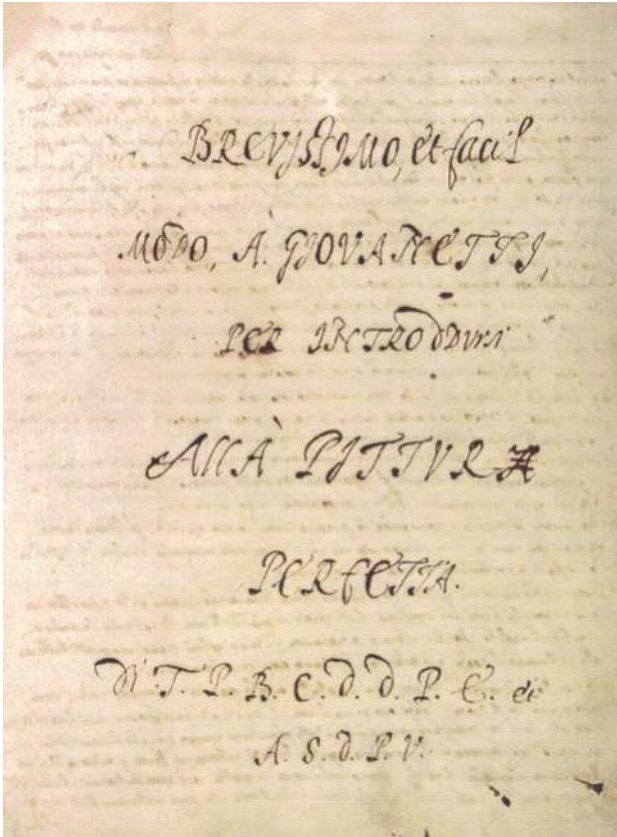 BREVISSIMO, et facil
MODO, À GIOVANETTI,
PER INTRODDURSI
ALLA PITTURA
PERFETTA.
Di T. P. B. C. D. D. P. E. et
A. S. d. P. V.